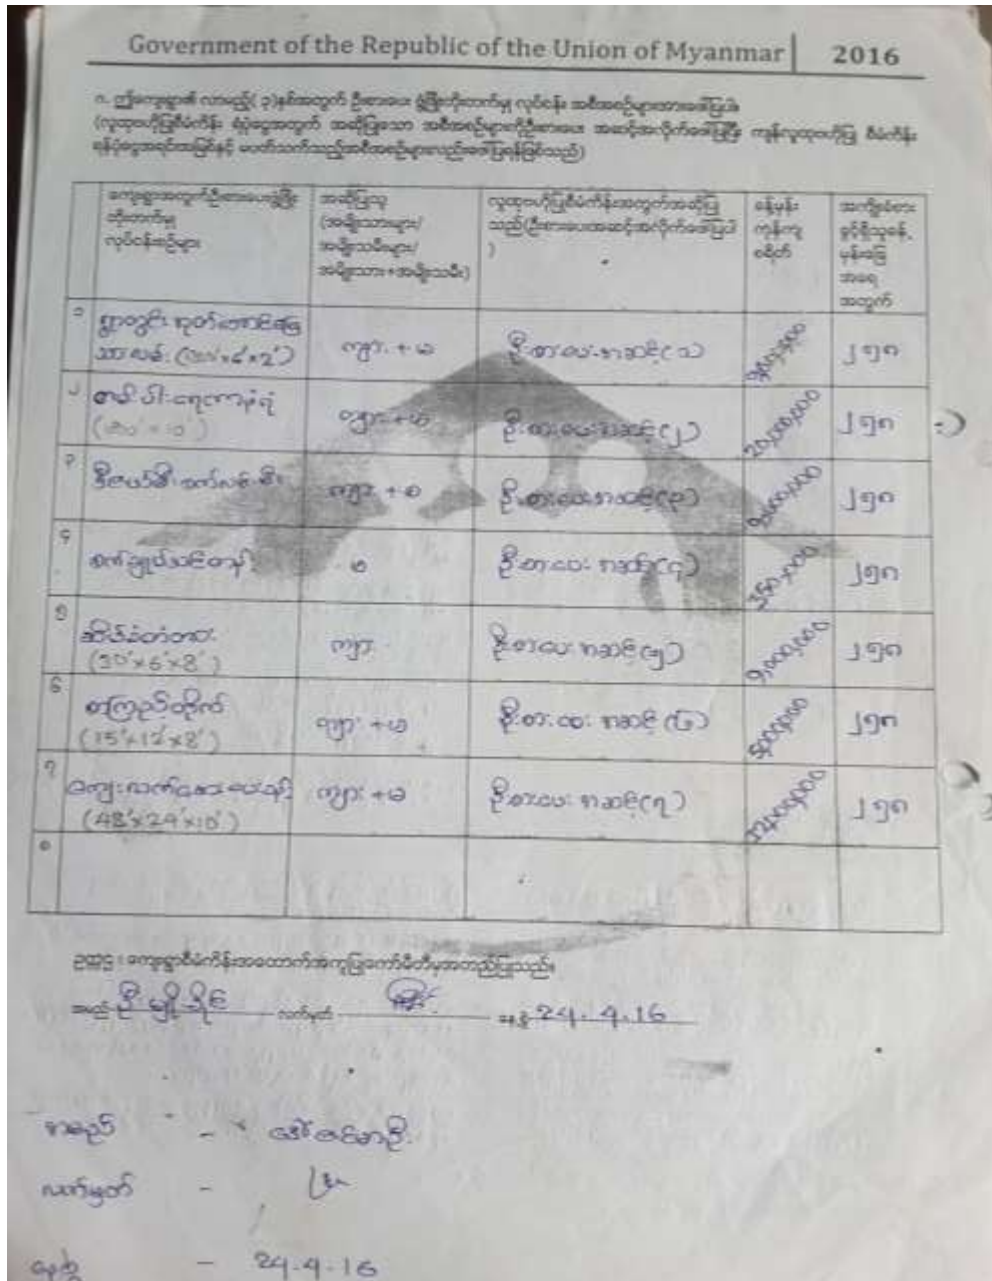 Government of the Republic of the Union of Myanmar | 2016
၈. ဤကျေးရွာ၏ လာမည့်( ၃)နှစ်အတွက် ဦးစားပေး ဖွံ့ဖြိုးတိုးတက်မှု လုပ်ငန်း အစီအစဉ်များအားဖော်ပြပါ
(လူထုဗဟိုပြုစီမံကိန်း ရံပုံငွေအတွက် အဆိုပြုသော အစီအစဉ်များကိုဦးစားပေး အဆင့်အလိုက်ဖော်ပြပြီး ကျန်လူထုဗဟိုပြု စီမံကိန်း
ရန်ပုံငွေအရင်းအမြစ်နှင့် မပတ်သက်သည့်အစီအစဉ်များလည်းဖော်ပြရန်ဖြစ်သည်)
ကျေးရွာအတွက်ဦးစားပေးဖွံ့ဖြိုး
တိုးတက်မှု
လုပ်ငန်းစဉ်များ
အဆိုပြုသူ
(အမျိုးသားများ/
အမျိုးသမီးများ/
အမျိုးသား+အမျိုးသမီး)
လူထုဗဟိုပြုစီမံကိန်းအတွက်အဆိုပြု
သည်(ဦးစားပေးအဆင့်အလိုက်ဖော်ပြပါ
)
ခန့်မှန်း
ကုန်ကျ
စရိတ်
အကျိုးခံစား
ခွင့်ရှိသူခန့်
မှန်းခြေ
အရေ
အတွက်
၁
ကျား + မ ဦးစားပေးအဆင့်(၁) ၂၅၈
၂
ကျား + မ ဦးစားပေးအဆင့်(၂) 20,000,000 ၂၅၈
၃
ကျား + မ ဦးစားပေးအဆင့်(၃) 9,000,000 ၂၅၈
၄
စက်ချုပ်သင်တန်း မ ဦးစားပေး အဆင့်(၄) 350,000 ၂၅၈
၅
ဆိပ်ခံတံတား ကျား ဦးစားပေး အဆင့်(၅) 9,000,000 ၂၅၈
(30'×6'×8')
၆
စာကြည့်တိုက် ကျား + မ ဦးစားပေး အဆင့်(၆) 5,000,000 ၂၅၈
(15'×12'×8')
၇
ကျေးလက်ဆေးပေးခန်း ကျား + မ ဦးစားပေး အဆင့်(၇) ၂၅၈
(48'×24'×10')
၈
ဥက္ကဋ္ဌ ၊ ကျေးရွာစီမံကိန်းအထောက်အကူပြုကော်မီတီမှအတည်ပြုသည်။
အမည် ဦးမျိုးခိုင် လက်မှတ် နေ့စွဲ 24.4.16
အမည် - ဒေါ်ဇင်မာဦး
လက်မှတ် -
နေ့စွဲ - 24.4.16